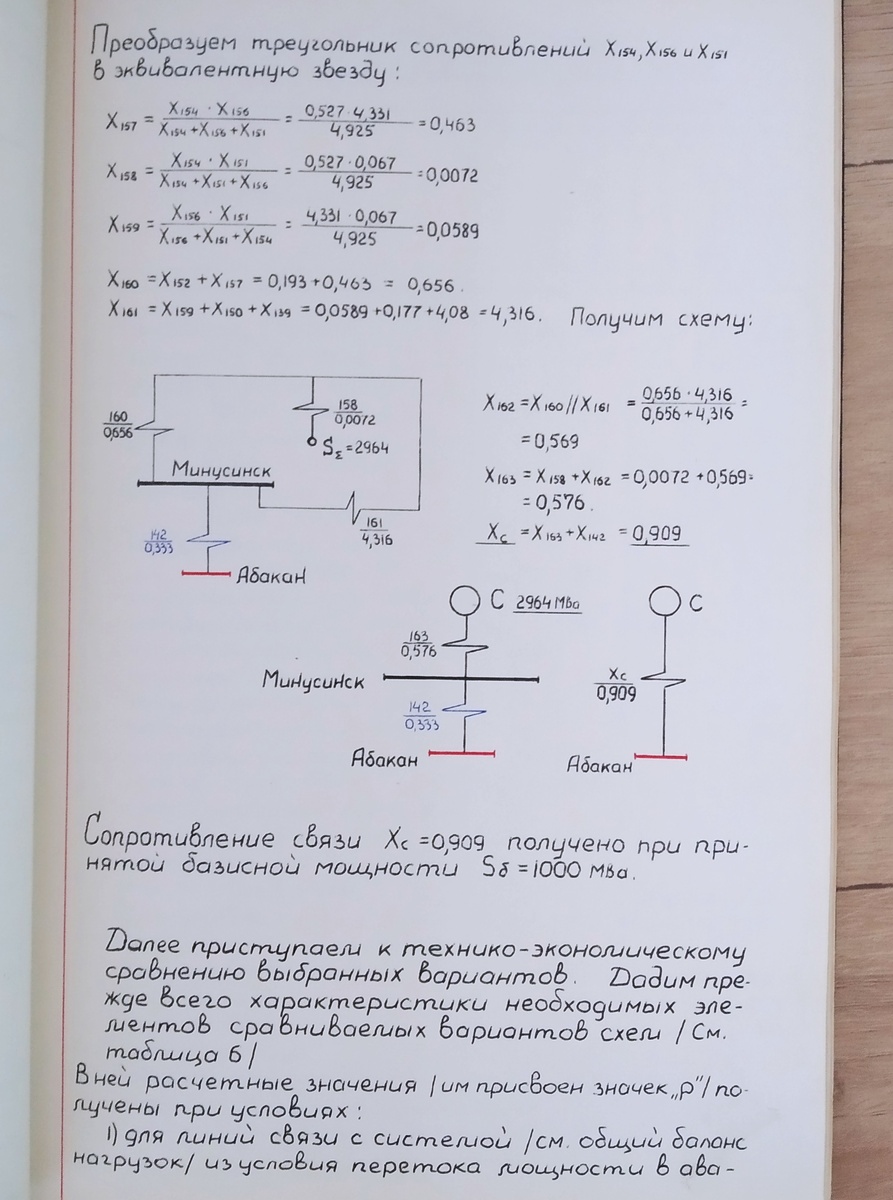 Преобразуем треугольник сопротивлений X154, X156 и X151
в эквивалентную звезду:
X157 = X154 · X156 / X154 + X156 + X151 = 0,527 · 4,331 / 4,925 = 0,463
X158 = X154 · X151 / X154 + X151 + X156 = 0,527 · 0,067 / 4,925 = 0,0072
X159 = X156 · X151 / X156 + X151 + X154 = 4,331 · 0,067 / 4,925 = 0,0589
X160 = X152 + X157 = 0,193 + 0,463 = 0,656.
X161 = X159 + X150 + X139 = 0,0589 + 0,177 + 4,08 = 4,316. Получим схему:
160
0,656
158
0,0072
SΣ = 2964
Минусинск
161
4,316
142
0,333
Абакан
X162 = X160 // X161 = 0,656 · 4,316 / 0,656 + 4,316 =
= 0,569
X163 = X158 + X162 = 0,0072 + 0,569 =
= 0,576.
Xc = X163 + X142 = 0,909
С 2964 Мва
163
0,576
Минусинск
142
0,333
Абакан
С
Xc
0,909
Абакан
Сопротивление связи Xc = 0,909 получено при при-
нятой базисной мощности Sδ = 1000 мва.
Далее приступаем к технико-экономическому
сравнению выбранных вариантов. Дадим пре-
жде всего характеристики необходимых эле-
ментов сравниваемых вариантов схем / См.
таблица 6/
В ней расчетные значения / им присвоен значек „р"/ по-
лучены при условиях:
1) для линий связи с системой /см. общий баланс
нагрузок/ из условия перетока мощности в ава-